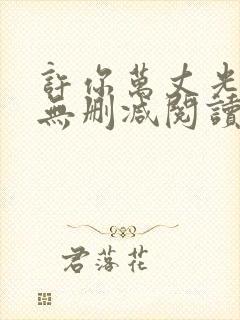 許你萬丈光
無刪減閱讀
君落花